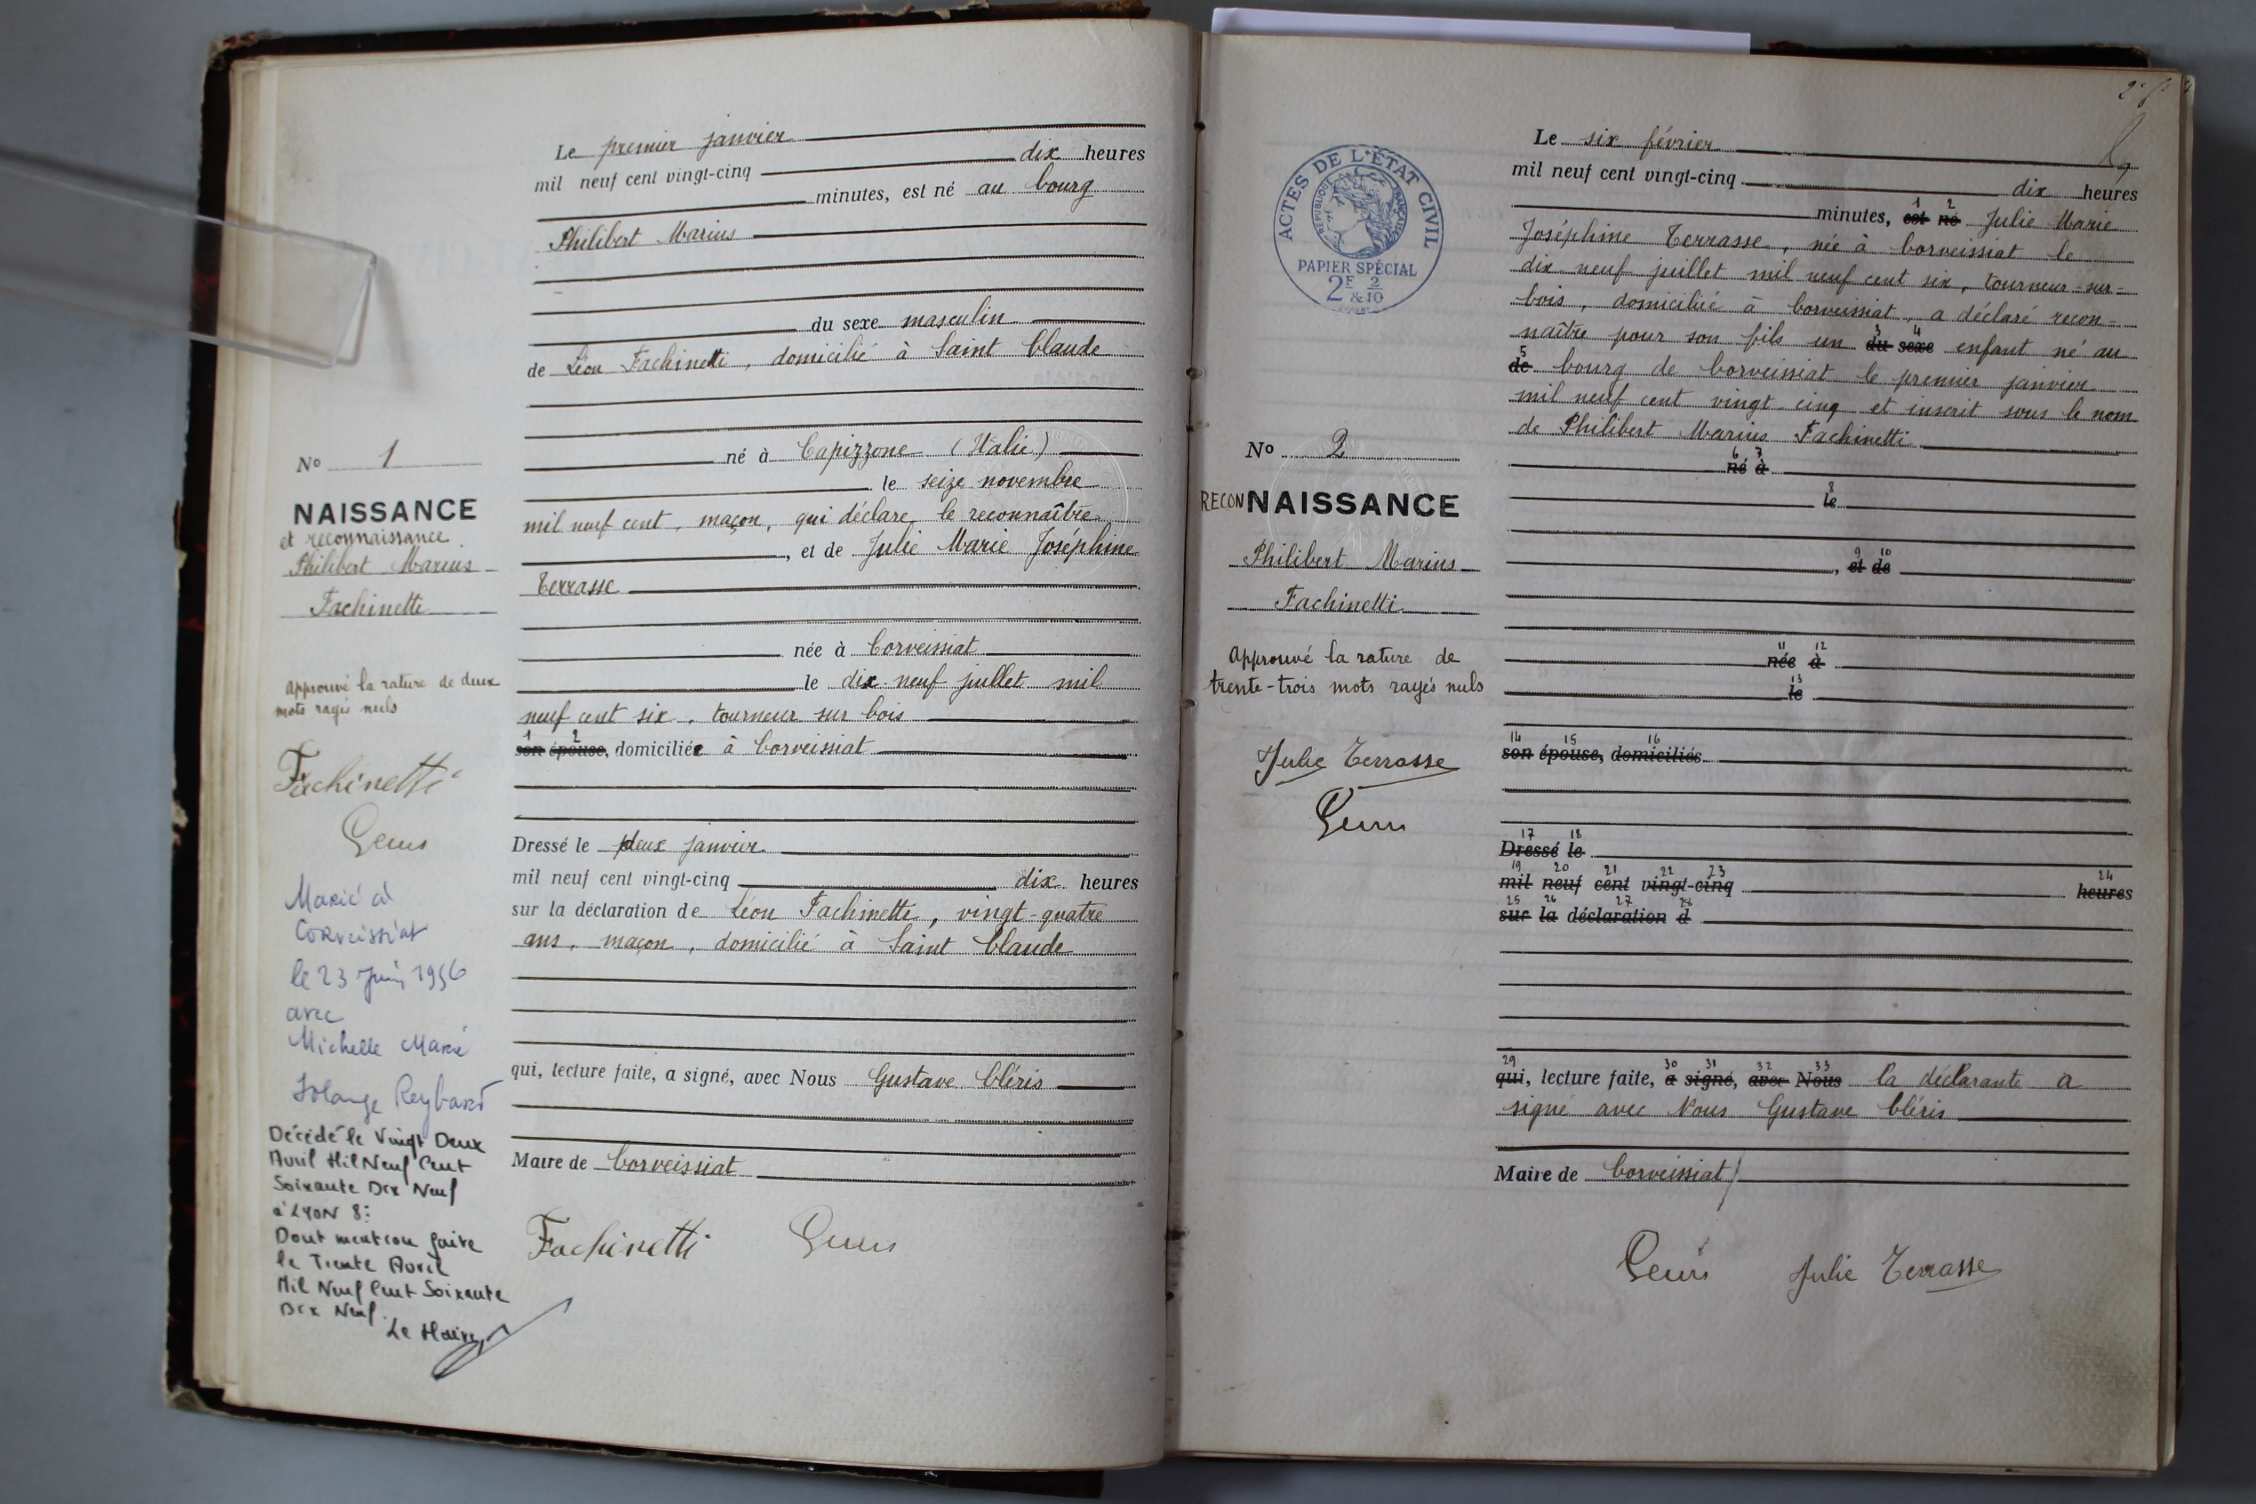 Le premier janvier
mil neuf cent vingt-cinq dix heures
minutes, est né au bourg
Philibert Marius
du sexe masculin
de Léon Fachinetti, domicilié à Saint Claude
né à Capizzone (Italie)
le seize novembre
mil neuf cent, maçon, qui déclare le reconnaître
, et de Julie Marie Joséphine
Terrasse
née à Corveissiat
le dix neuf juillet mil
neuf cent six, tourneur sur bois
1 2
son épouse, domiciliée à Corveissiat
Dressé le deux janvier
mil neuf cent vingt-cinq dix heures
sur la déclaration de Léon Fachinetti, vingt-quatre
ans, maçon, domicilié à Saint Claude
qui, lecture faite, a signé, avec Nous Gustave Cléris
Maire de Corveissiat
Fachinetti
No 1
NAISSANCE
et reconnaissance
Philibert Marius
Fachinetti
Approuvé la rature de deux
mots rayés nuls
Fachinetti
Marié à
Corveissiat
le 23 Juin 1956
avec
Michelle Marie
Solange Reybard
Décédé le Vingt Deux
Avril Mil Neuf Cent
Soixante Dix Neuf
à LYON 8e
Dont mention faite
le Trente Avril
Mil Neuf Cent Soixante
Dix Neuf.
Le Maire,
ACTES DE L'ÉTAT CIVIL
RÉPUBLIQUE FRANÇAISE
PAPIER SPÉCIAL
2F & 2/10
Le six février
mil neuf cent vingt-cinq dix heures
1 2
minutes, est né Julie Marie
Joséphine Terrasse, née à Corveissiat le
dix neuf juillet mil neuf cent six, tourneur-sur-
bois, domiciliée à Corveissiat, a déclaré recon-
3 4
naître pour son fils un du sexe enfant né au
5
de bourg de Corveissiat le premier janvier
mil neuf cent vingt cinq et inscrit sous le nom
de Philibert Marius Fachinetti
6 7
né à
8
le
9 10
, et de
11 12
née à
13
le
14 15 16
son épouse, domiciliés
17 18
Dressé le
19 20 21 22 23 24
mil neuf cent vingt-cinq heures
25 26 27 28
sur la déclaration d
29 30 31 32 33
qui, lecture faite, a signé, avec Nous la déclarante a
signé avec Nous Gustave Cléris
Maire de Corveissiat
Julie Terrasse
No 2
RECONNAISSANCE
Philibert Marius
Fachinetti
Approuvé la rature de
trente-trois mots rayés nuls
Julie Terrasse